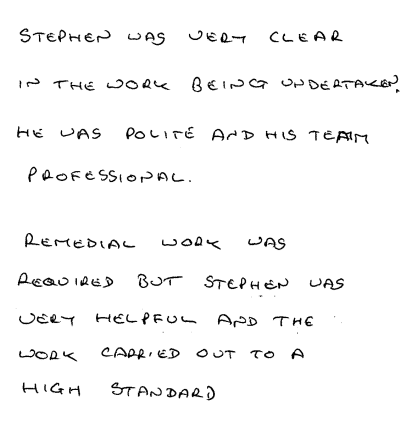 STEPHEN WAS VERY CLEAR
IN THE WORK BEING UNDERTAKEN.
HE WAS POLITE AND HIS TEAM
PROFESSIONAL.
REMEDIAL WORK WAS
REQUIRED BUT STEPHEN WAS
VERY HELPFUL AND THE
WORK CARRIED OUT TO A
HIGH STANDARD